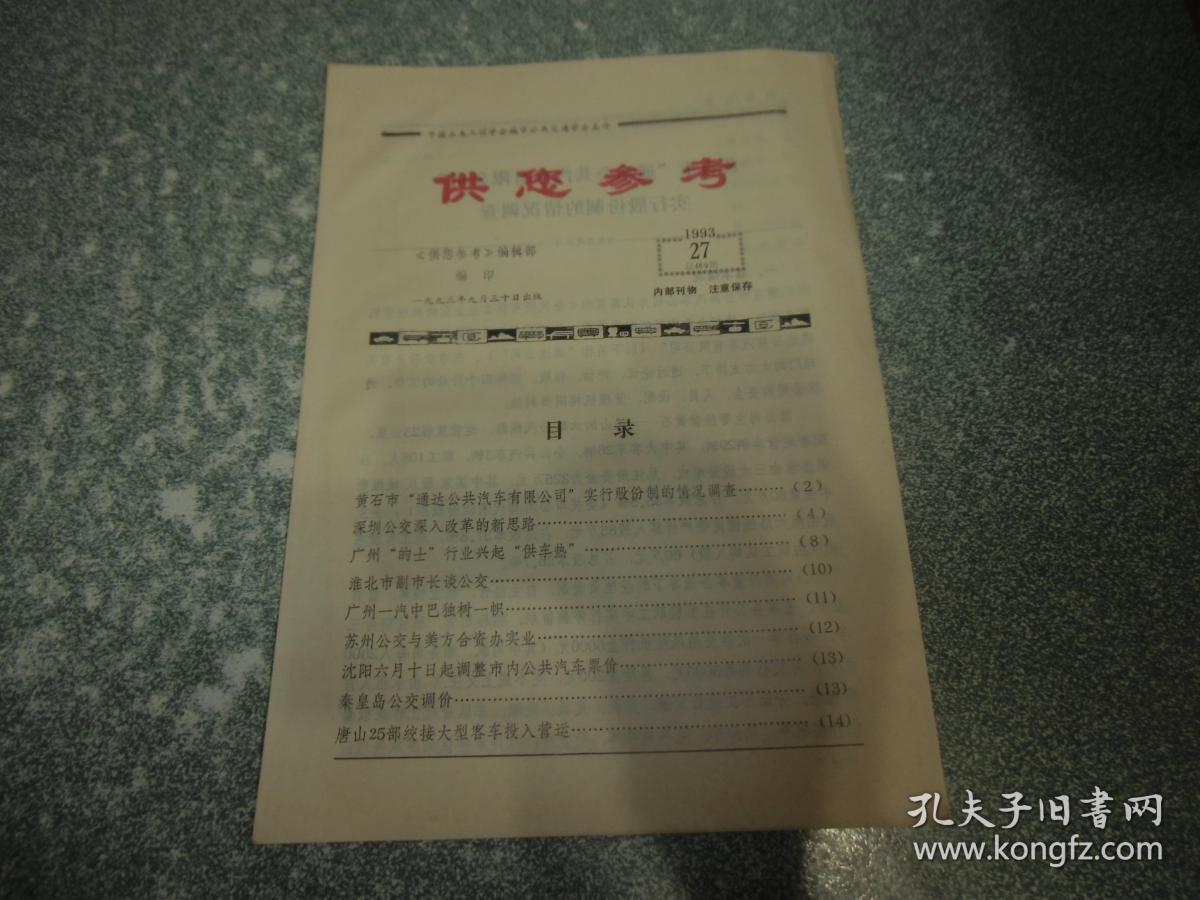 中国土木工程学会城市公共交通学会主办
供您参考
《供您参考》编辑部
编印
一九九三年九月三十日出版
1993
27
内部刊物 注意保存
目 录
黄石市“通达公共汽车有限公司”实行股份制的情况调查………（2）
深圳公交深入改革的新思路………（4）
广州“的士”行业兴起“供车热”………（8）
淮北市副市长谈公交………（10）
广州一汽中巴独树一帜………（11）
苏州公交与美方合资办实业………（12）
沈阳六月十日起调整市内公共汽车票价………（13）
秦皇岛公交调价………（13）
唐山25部绞接大型客车投入营运………（14）
孔夫子旧书网
www.kongfz.com